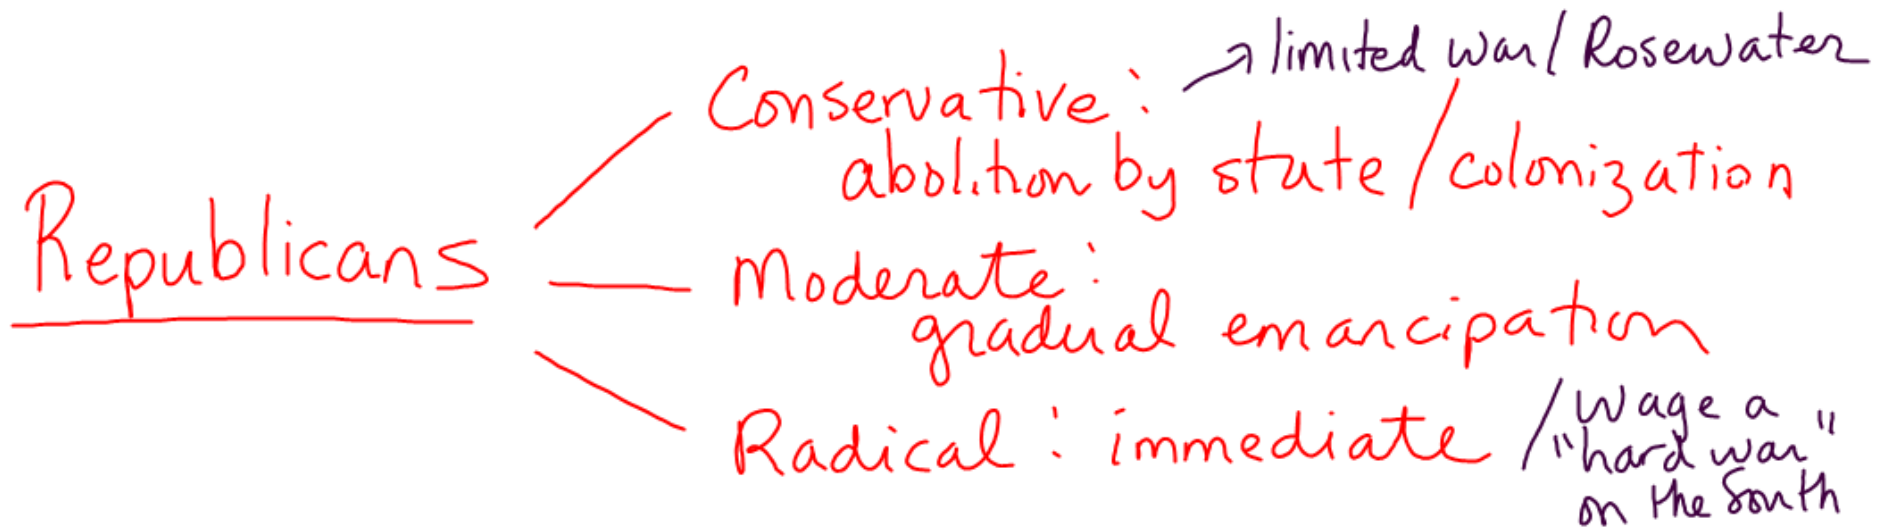 Republicans
Conservative: → limited war / Rosewater
abolition by state / colonization
Moderate:
gradual emancipation
Radical: immediate / Wage a
"hard war"
on the South